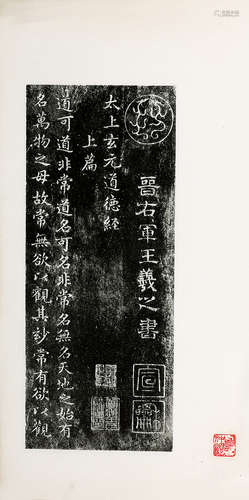 晉右軍王羲之書
太上玄元道德經
上篇
道可道非常道名可名非常名無名天地之始有
名萬物之母故常無欲以觀其妙常有欲以觀
宣和